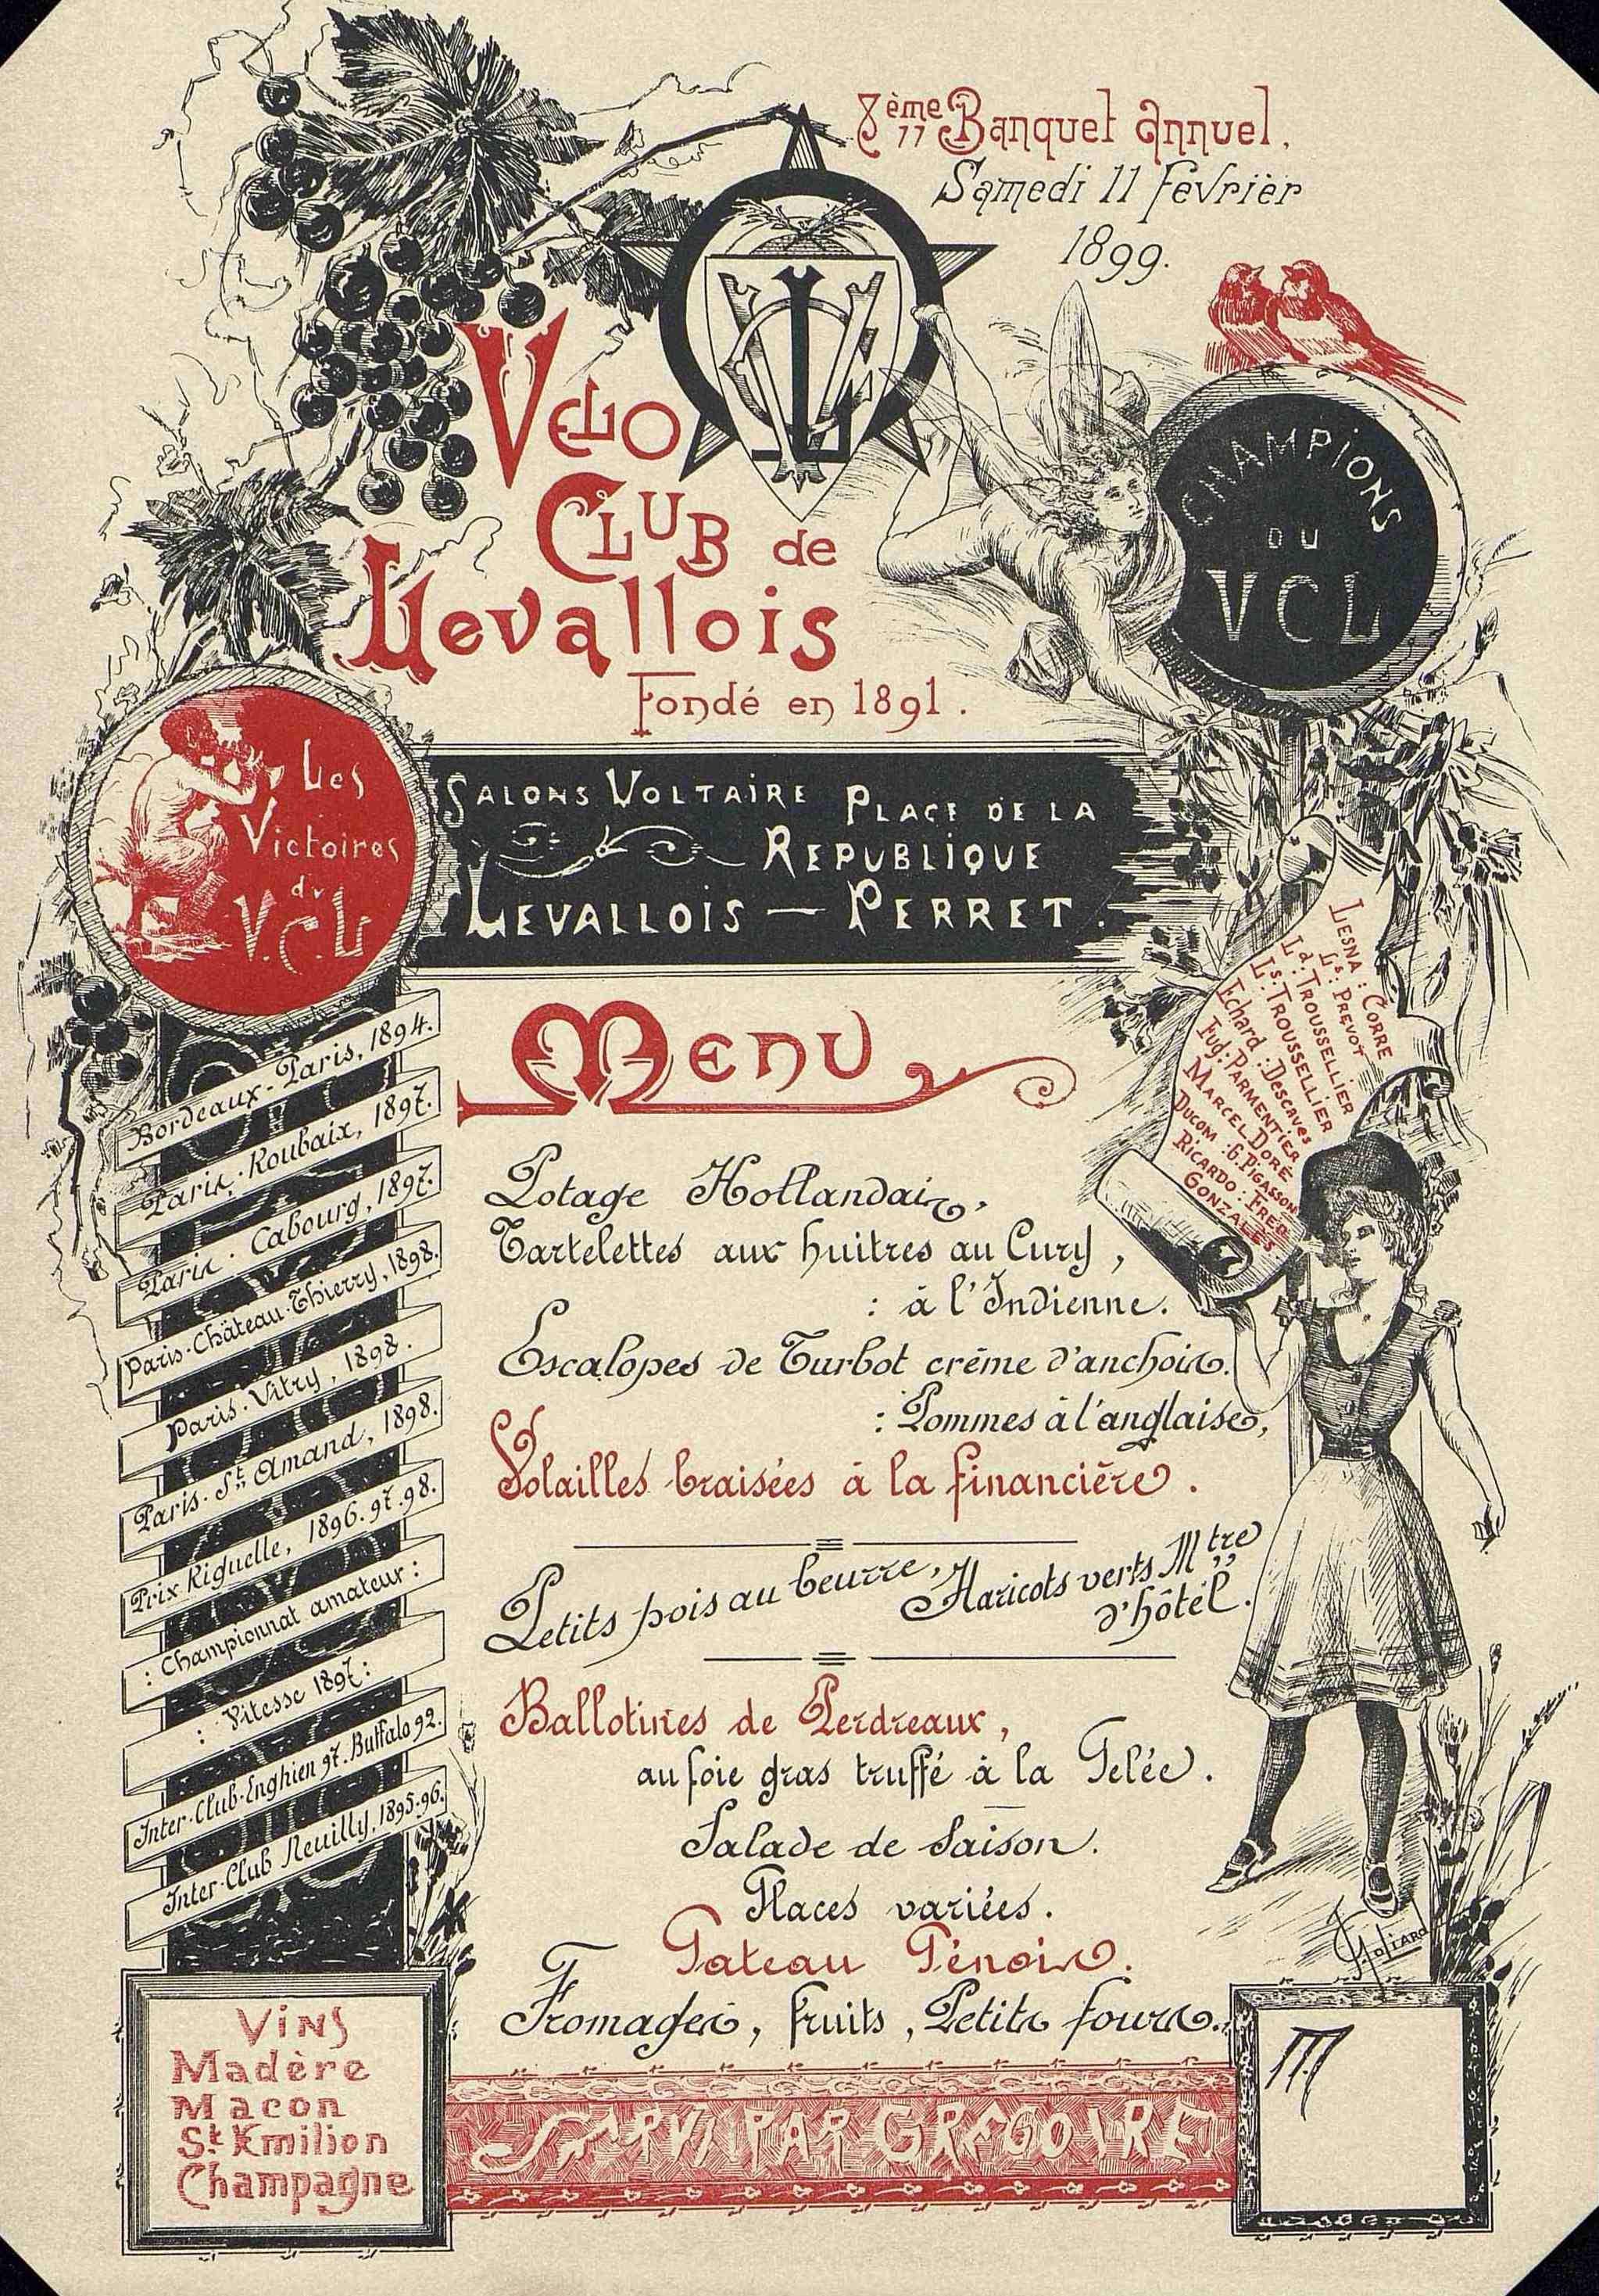 8ème Banquet annuel,
Samedi 11 Fevrièr
1899.
VCL
VELO
CLUB de
Levallois
Fondé en 1891.
CHAMPIONS
DU
VCL
Les
Victoires
du
V.C.L
SALONS VOLTAIRE PLACE DE LA
REPUBLIQUE
LEVALLOIS — PERRET.
LESNA : CORRE
Ls: PREVOT
Ld: TROUSSELLIER
Ls: TROUSSELLIER
Echard : Descaves
Eug: PARMENTIER
MARCEL DORÉ
DUCOM : G. PIGASSON
RICARDO : FRED
GONZALÈS
Bordeaux-Paris, 1894.
Paris-Roubaix, 1897.
Paris-Cabourg, 1897.
Paris-Château-Thierry, 1898.
Paris-Vitry, 1898.
Paris-St Amand, 1898.
Prix Riguelle, 1896.97.98.
: Championnat amateur :
: Vitesse 1897:
Inter-Club-Enghien 97. Buffalo 92.
Inter-Club Neuilly, 1895-96.
MENU
Potage Hollandais,
Tartelettes aux huitres au Cury,
: à l'Indienne.
Escalopes de Turbot crême d'anchois.
: Pommes à l'anglaise,
Volailles braisées à la financière.
Petits pois au beurre, Haricots verts Mtre
d'hôtel.
Ballotines de Perdreaux,
au foie gras truffé à la Gelée.
Salade de Saison.
Glaces variées.
Gateau Génois.
Fromages, fruits, Petits fours.
VINS
Madère
Macon
St Emilion
Champagne
SERVI PAR GREGOIRE
M